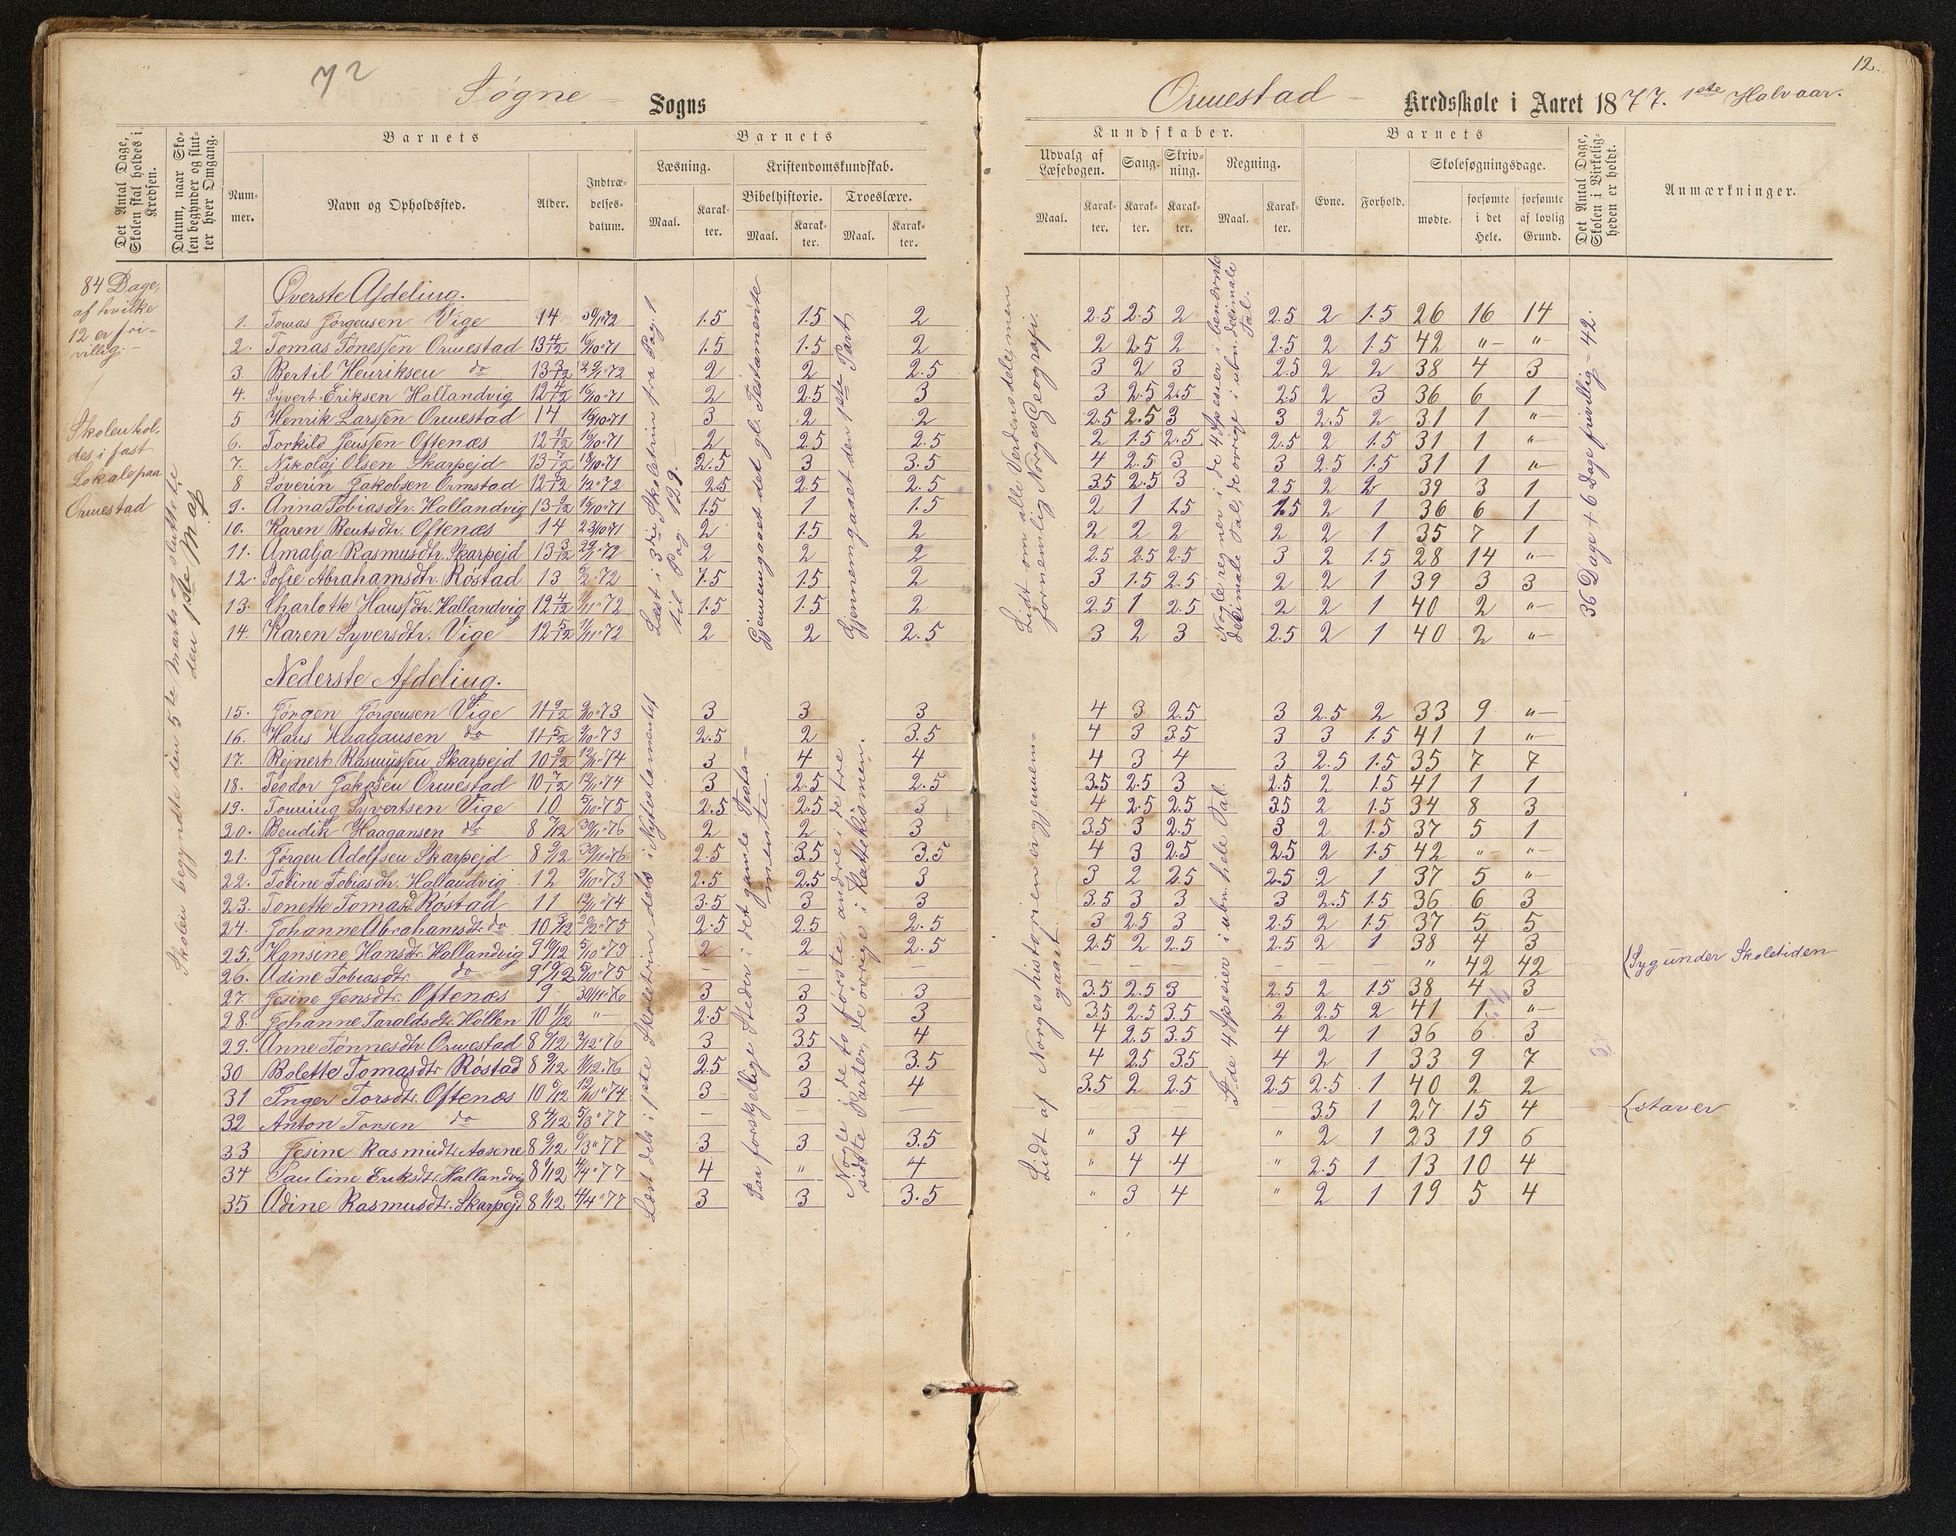 72
12.
Søgne – Sogns
Ormestad – Kredsskole i Aaret 1877. 1ste Halvaar.
Det Antal Dage, Skolen skal holdes i Kredsen.
Datum, naar Skolen begynder og slutter hver Omgang.
Barnets
Nummer.
Navn og Opholdssted.
Alder.
Indtrædelsesdatum.
Barnets
Læsning.
Maal.
Karakter.
Kristendomskundskab.
Bibelhistorie.
Maal.
Karakter.
Troeslære.
Maal.
Karakter.
Kundskaber.
Udvalg af Læsebogen.
Maal.
Karakter.
Sang.
Karakter.
Skrivning.
Karakter.
Regning.
Maal.
Karakter.
Barnets
Evne.
Forhold.
Skolesøgningsdage.
mødte.
forsømte i det Hele.
forsømte af lovlig Grund.
Det Antal Dage, Skolen i Virkeligheden er holdt.
Anmærkninger.
84 Dage,
af hvilke
12 er fri-
villig. –
Skolen hol-
des i fast
Lokale paa
Ormestad
Skolen begyndte den 5te Marts og sluttede
den 1ste Maj
Læst i 3die Skoletrin fra Pag. 1
til Pag 129. –
Gjennemgaaet det gl. Testamente
Gjennemgaaet den 1ste Part
Lidt om alle Verdensdele, men
fornemlig Norges Geografi.
Nogle regner i de 4 Spesier i benævnte
decimale Tal, de øvrige i ubn. decimale
Tal.
36 Dage + 6 Dage frivillig = 42.
Øverste Afdeling.
1. Tomas Jørgensen Vige 14 30/1 72 1.5 1.5 2 2.5 2.5 2 2.5 2 1.5 26 16 14
2. Tomas Tønessen Ormestad 13 4/12 16/10 71 1.5 1.5 2 2 2.5 2 2.5 2 1.5 42 " "
3 Bertil Henriksen do 13 3/12 22/1 72 2 2 2.5 3 2 3 2.5 2 2 38 4 3
4. Syvert Eriksen Hallandvig 12 4/12 16/10 71 2 2.5 3 3 2.5 2.5 2.5 2 3 36 6 1
5 Henrik Larssen Ormestad 14 16/10 71 3 2 2 2.5 2.5 3 3 2.5 2 31 1 "
6. Torkild Jenssen Oftenæs 12 11/12 19/10 71 2 2.5 2.5 2 1.5 2.5 2.5 2 1.5 31 1 "
7. Nikolaj Olsen Skarpejd 13 7/12 18/10 71 2.5 3 3.5 4 2.5 3 3 2.5 1.5 31 1 "
8 Søverin Jakobsen Ormstad 12 8/12 1/2 72 2.5 2.5 2.5 3.5 2.5 3 2.5 2 2 39 3 1
9. Anna Tobiasdtr. Hallandvig 13 9/12 16/10 71 1.5 1 1.5 2 1 1.5 1.5 2 1 36 6 1
10. Karen Bentsdtr. Oftenæs 14 23/10 71 2 1.5 2 2 2 2 2 2 1 35 7 1
11. Amalja Rasmusdtr. Skarpejd 13 3/12 22/1 72 2 2 2 2.5 2.5 2.5 3 2 1.5 28 14 "
12. Sofie Abrahamsdtr. Røstad 13 6/2 72 1.5 1.5 2 3 1.5 2.5 2 2 1 39 3 3
13. Charlotte Hansdtr. Hallandvig 12 4/12 1/11 72 1.5 1.5 2 2.5 1 2.5 2 2 1 40 2 "
14. Karen Syversdtr. Vige 12 5/12 1/11 72 2 2 2.5 3 2 3 2.5 2 1 40 2 "
Nederste Afdeling.
15. Jørgen Jørgensen Vige 11 9/12 9/10 73 3 3 3 4 3 2.5 3 2.5 2 33 9 "
16. Hans Haagansen do 11 5/12 9/10 73 2.5 2 3.5 4 3 3.5 3 3 1.5 41 1 "
17. Rejnert Rasmussen Skarpejd 10 9/12 12/1 74 3 4 4 4 3 4 3 2.5 1.5 35 7 7
18. Teodor Jakobsen Ormestad 10 7/12 12/1 74 3 2.5 2.5 3.5 2.5 3 2.5 2 1.5 41 1 1
19. Tønning Syvertsen Vige 10 5/10 75 2.5 2.5 3 4 2.5 2.5 3.5 2 1.5 34 8 3
20. Bendik Haagansen do 8 7/12 30/11 76 2 2 3 3.5 3 2.5 3 2 1.5 37 5 1
21. Jørgen Adolfsen Skarpejd 8 9/12 30/11 76 2.5 3.5 3.5 4 3 2.5 2.5 2 1.5 42 " "
22. Tobine Tobiasdtr. Hallandvig 12 9/10 73 2.5 2.5 3 3 2 2.5 2.5 2 1 37 5 "
23. Tonette Tomasd Røstad 11 12/1 74 3.5 3 3 3.5 3 3 3 2.5 1.5 36 6 3
24. Johanne Abrahamsdtr. do 10 3/12 22/2 75 2.5 2.5 2.5 3 2.5 3 2.5 2 1.5 37 5 5
25. Hansine Hansdtr. Hallandvig 9 10/12 5/10 73 2 2 2.5 2.5 2 2.5 2.5 2 1 38 4 3
26. Adine Tobiasdtr. do 9 9/12 9/10 75 – – – – – – – – " 42 42 Syg under Skoletiden
27. Jesine Jensdtr. Oftenæs 9 30/11 76 3 3 3 3.5 2.5 3 2.5 2 1.5 38 4 3
28. Johanne Taraldsdtr. Høllen 10 1/12 " 2.5 3 3 3.5 2.5 3.5 2 2.5 2 41 1 "
29. Anne Tønnesdtr. Ormestad 8 9/12 9/12 76 3 3.5 4 4 2.5 3.5 4 2 1 36 6 3
30 Bolette Tomasdtr Røstad 8 9/12 1/12 76 2.5 3 3.5 4 2.5 3.5 4 2 1 33 9 7
31 Inger Torsdtr. Oftenæs 10 5/12 12/10 74 3 3 4 3.5 2 2.5 2.5 2.5 1 40 2 2
32 Anton Torsen do 8 4/12 5/3 77 – – – 3.5 1 27 15 4 staver
33 Jesine Rasmudtr. Aasene 8 9/12 9/3 77 3 3 3.5 " 3 4 " 2 1 23 19 6
34 Pauline Eriksdtr. Hallandvig 8 9/12 4/4 77 4 " 4 " 4 4 " 2.5 1 13 10 4
35 Adine Rasmusdtr. Skarpejd 8 1/12 4/4 77 3 3 3.5 " 3 4 " 2 1 19 5 4
Læst dels i 1ste Skoletrin dels i Nytestamentet
Paa forskjellige Steder i det gamle Testa-
mente.
Nogle i de to første, andre i de tre
sidste Parter, de øvrige i Katekismen.
Lidt af Norgeshistorien er gjennem-
gaaet.
I de 4 Spesier i ubn. hele Tal.